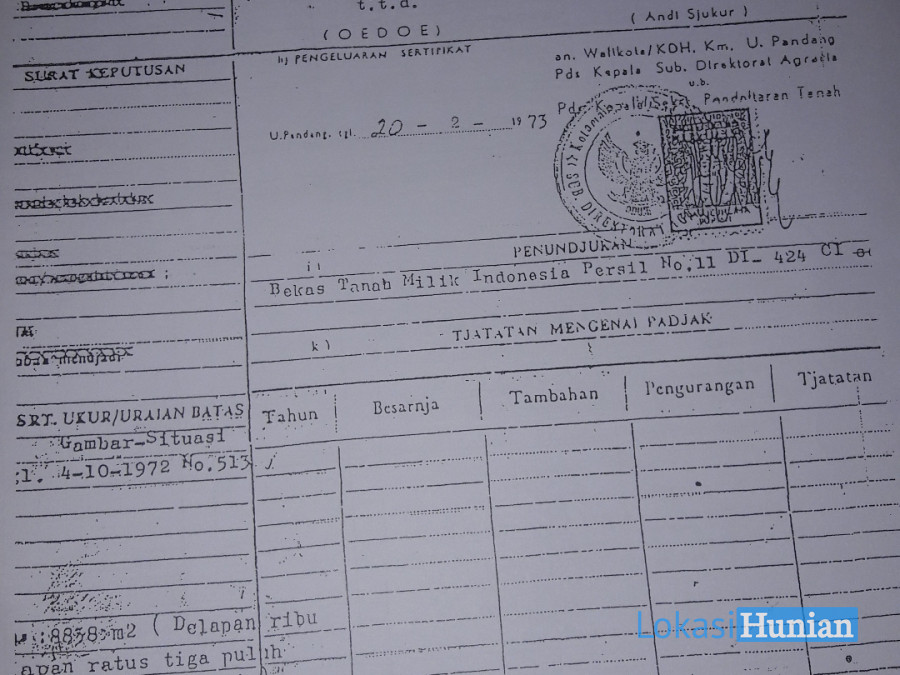 t.t.d.
( OEDOE )
( Andi Sjukur )
SURAT KEPUTUSAN
h) PENGELUARAN SERTIFIKAT
an. Walikota/KDH. Km. U. Pandang
Pds Kepala Sub. Direktorat Agraria
u.b.
Pds. Kepala Seksi Pendaftaran Tanah
U.Pandang, tgl. 20 - 2 - 1973
SUB DIREKTORAT
i)
PENUNDJUKAN
Bekas Tanah Milik Indonesia Persil No.11 DI- 424 CI
k)
TJATATAN MENGENAI PADJAK
SRT. UKUR/URAIAN BATAS
Tahun
Besarnja
Tambahan
Pengurangan
Tjatatan
Gambar-Situasi
4-10-1972 No.513
8838 m2 ( Delapan ribu
apan ratus tiga puluh
LokasiHunian